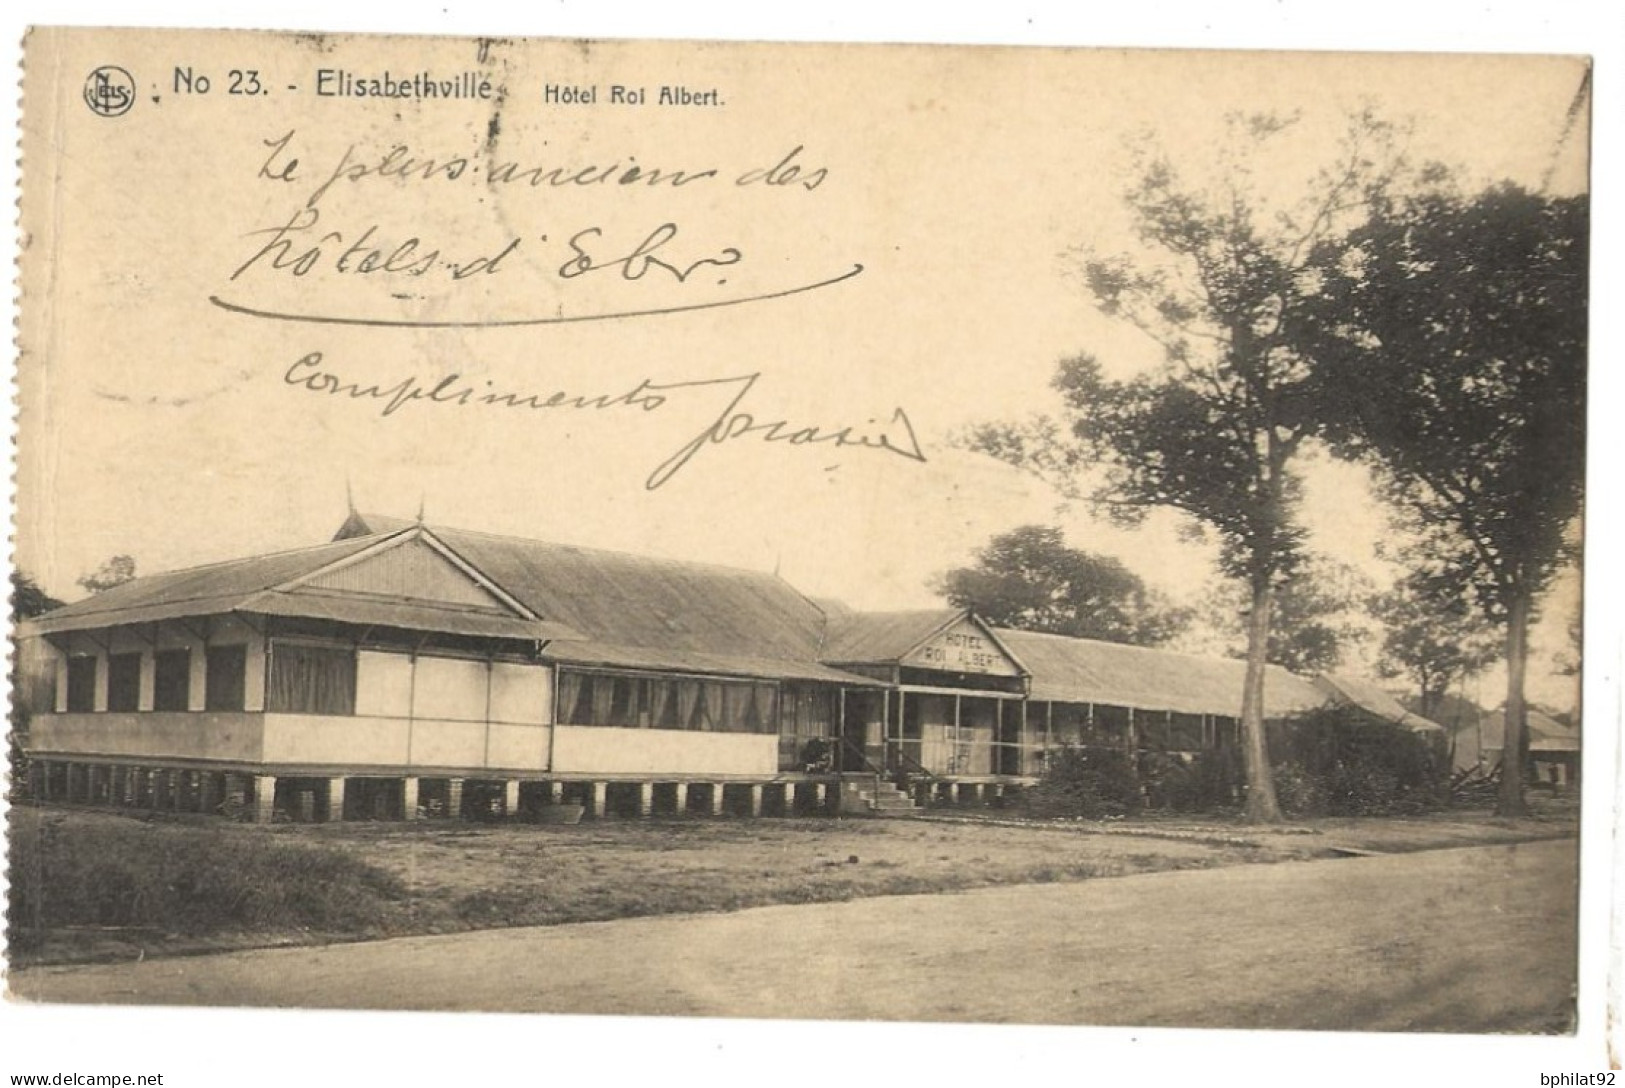 NELS
No 23. - Elisabethville. Hôtel Roi Albert.
Le plus ancien des
hôtels d'Ebv.
Compliments
HOTEL
ROI ALBERT
delcampe.net
bphilat92